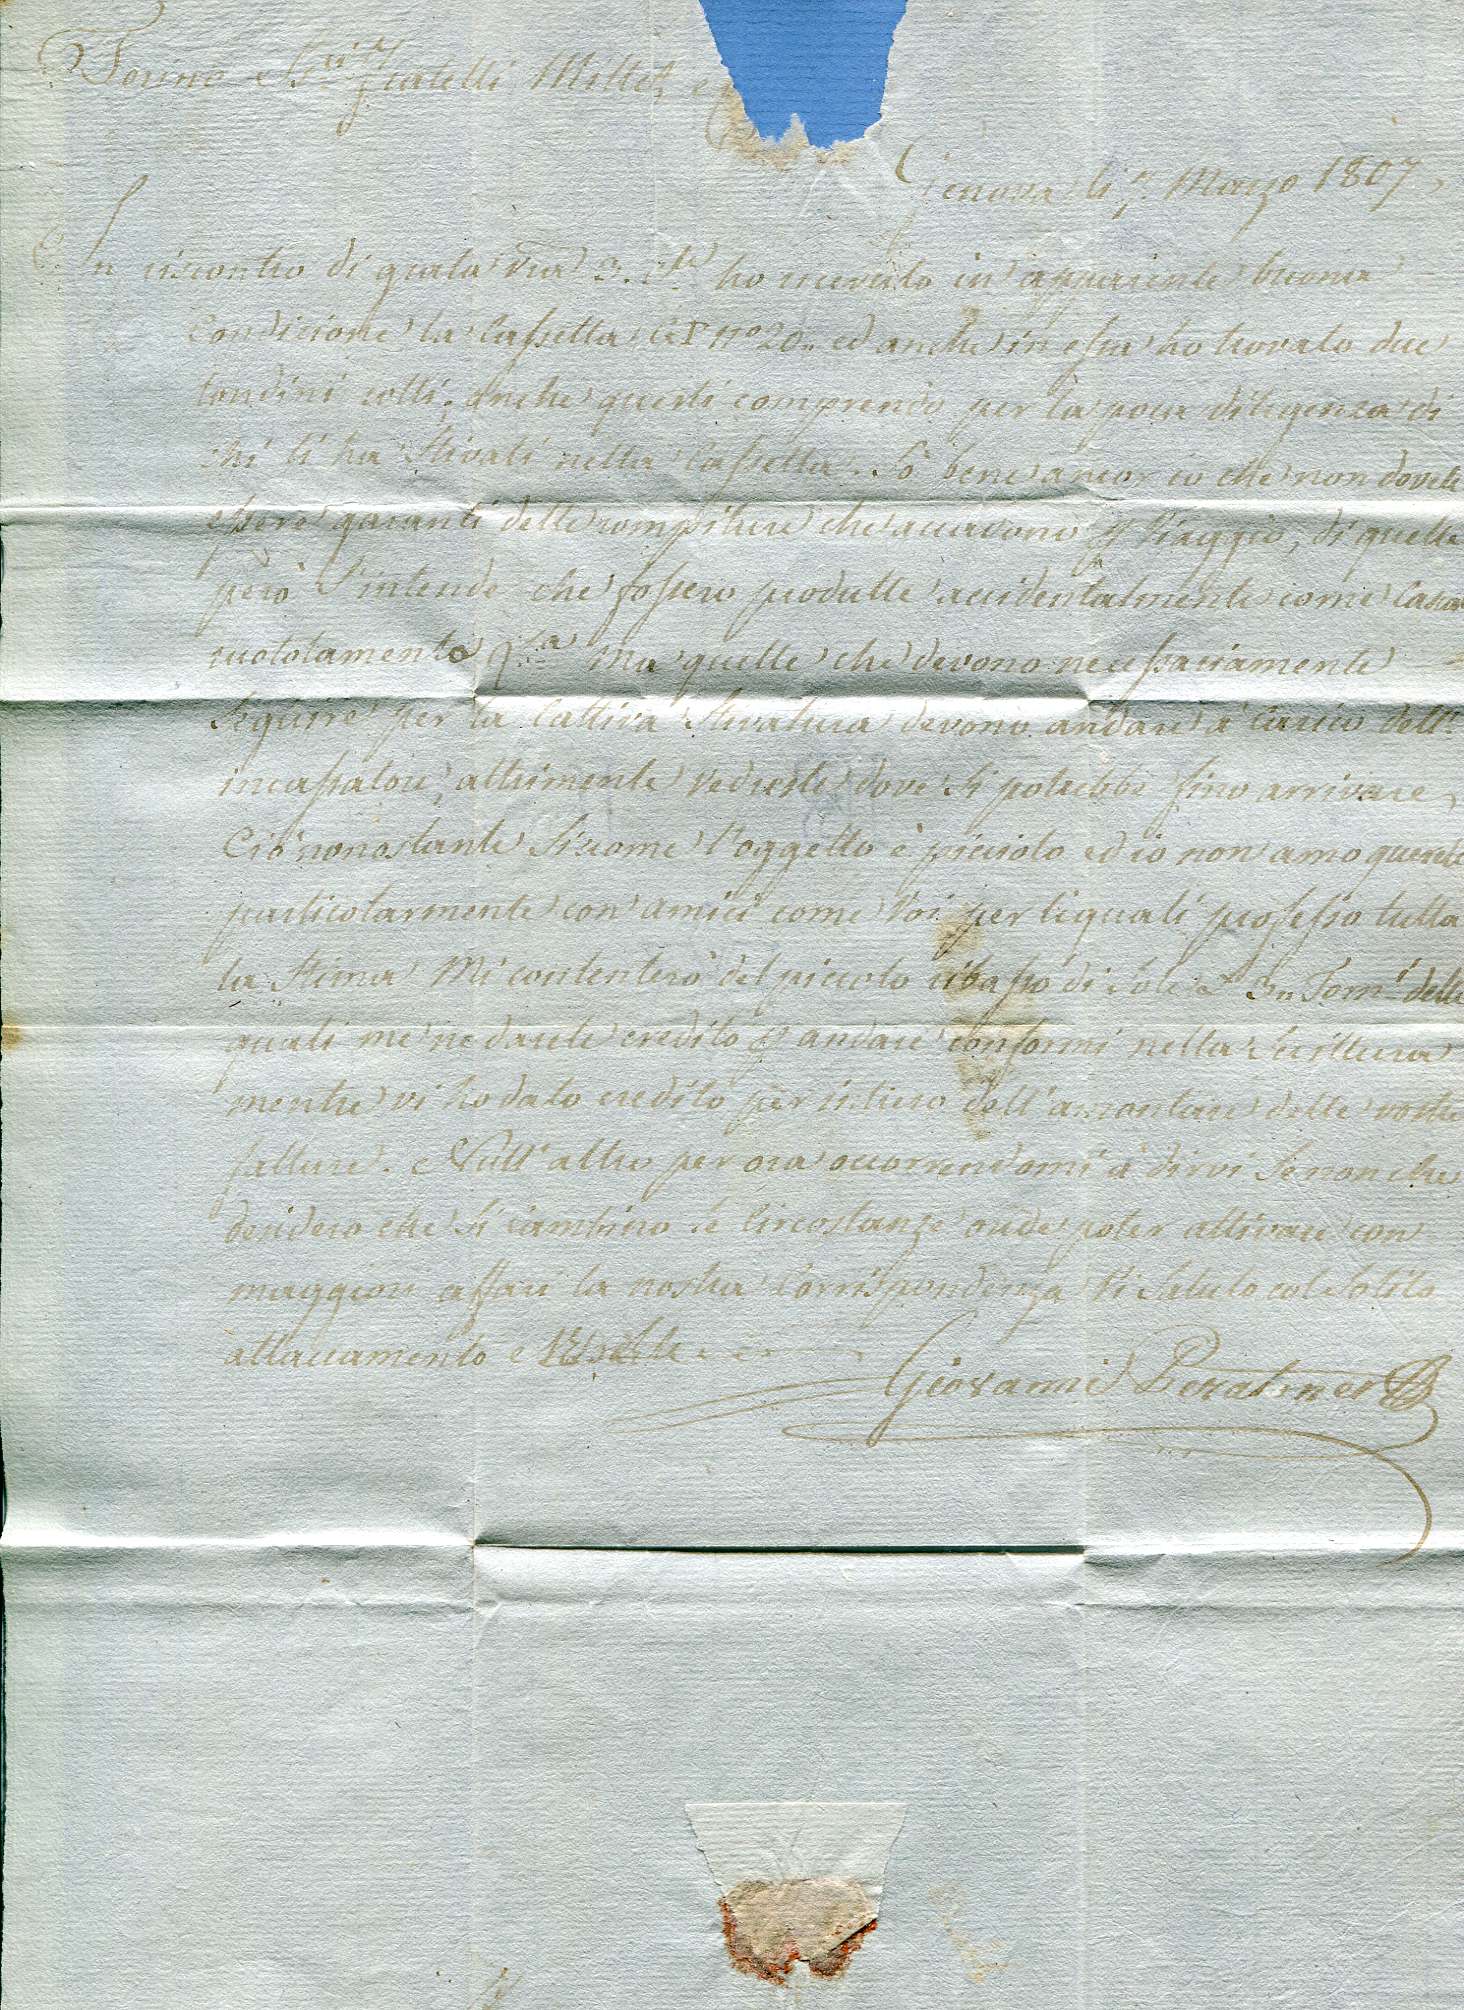 Torino Sri Fratelli Millet e
Genova li 7 Marzo 1807
In riscontro di grata vra 3. cte ho ricevuto in apparente buona
Condizione la Cassetta N° 20. ed anche in essa ho trovato due
tondini rotti, anche questi comprendo per la poca diligenza di
chi li ha stivati nella Cassetta. Sò bene ancor io che non dovete
essere garanti delle rompiture che accadono Viaggio, di quelle
però S'intende che fossero prodotte accidentalmente come
ruotolamento ma quelle che devono necessariamente
Seguire per la Cattiva Stivatura devono andare a Carico dell'
incassatore, altrimente vedreste dove si potrebbe fino arrivare,
Ciò nonostante Siccome l'oggetto è picciolo ed io non amo querele
particolarmente con amici come Voi per li quali professo tutta
la Stima Mi contenterò del piccolo ribasso di Sole delle
quali me ne darete credito andare conformi nella Scrittura
mentre vi ho dato credito per intiero dell'amontare delle vostre
fatture. Null'altro per ora occorrendomi à dirvi Senonche
desidero che Si cambino le Circostanze onde poter attivare con
maggiori affari la nostra Corrispondenza Vi Saluto col Solito
attaccamento e
Giovanni